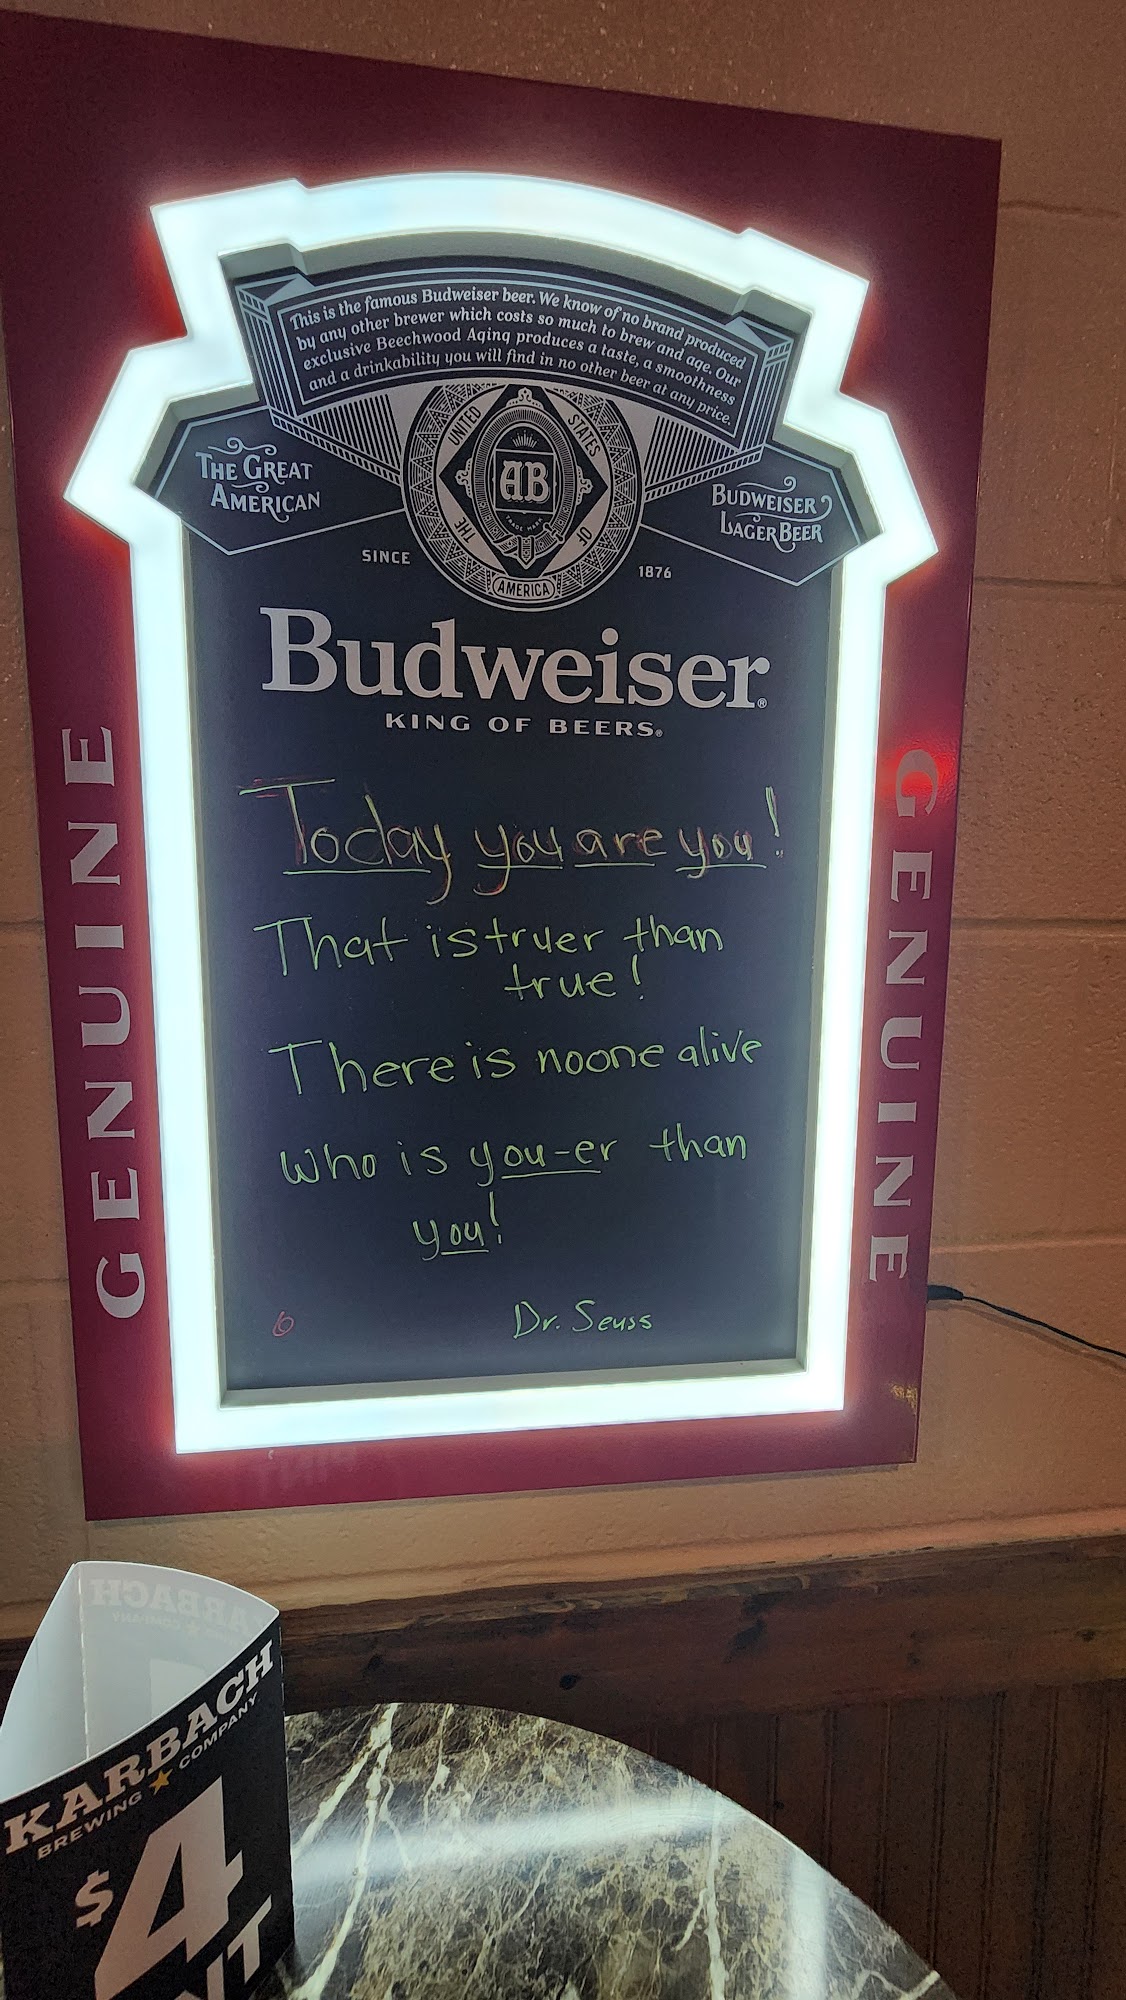 This is the famous Budweiser beer. We know of no brand produced
by any other brewer which costs so much to brew and age. Our
exclusive Beechwood Aging produces a taste, a smoothness
and a drinkability you will find in no other beer at any price.
THE GREAT
AMERICAN
THE UNITED STATES OF
AMERICA
AB
TRADE MARK
BUDWEISER
LAGER BEER
SINCE
1876
Budweiser®
KING OF BEERS®
GENUINE
GENUINE
Today you are you!
That is truer than
true!
There is noone alive
who is you-er than
you!
Dr. Seuss
KARBACH
BREWING ★ COMPANY
$4